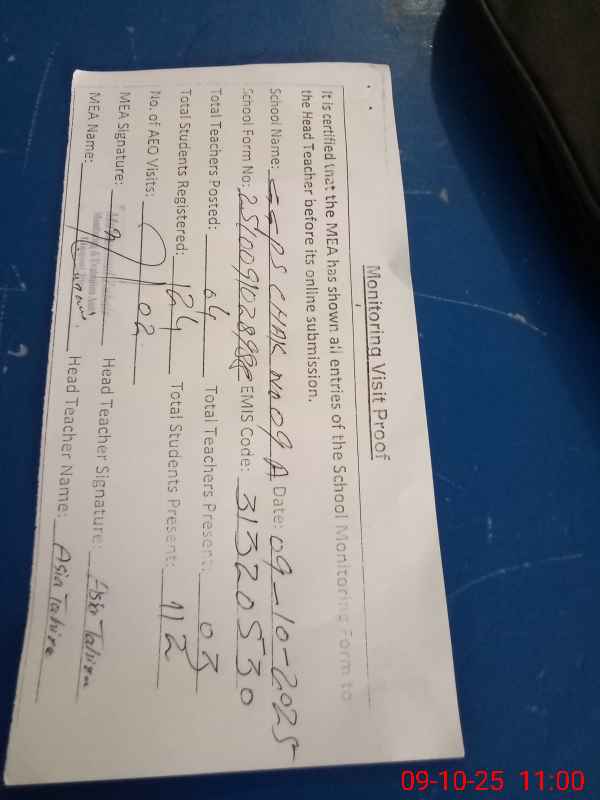 Monitoring Visit Proof
It is certified that the MEA has shown all entries of the School Monitoring Form to
the Head Teacher before its online submission.
School Name: GGPS CHAK No 09 A Date: 09-10-2025
School Form No: EMIS Code: 31320530
Total Teachers Posted: 04 Total Teachers Present: 03
Total Students Registered: 124 Total Students Present: 112
No. of AEO Visits: 02
MEA Signature: Head Teacher Signature: Asia Tahira
MEA Name: Head Teacher Name: Asia Tahira
09-10-25 11:00